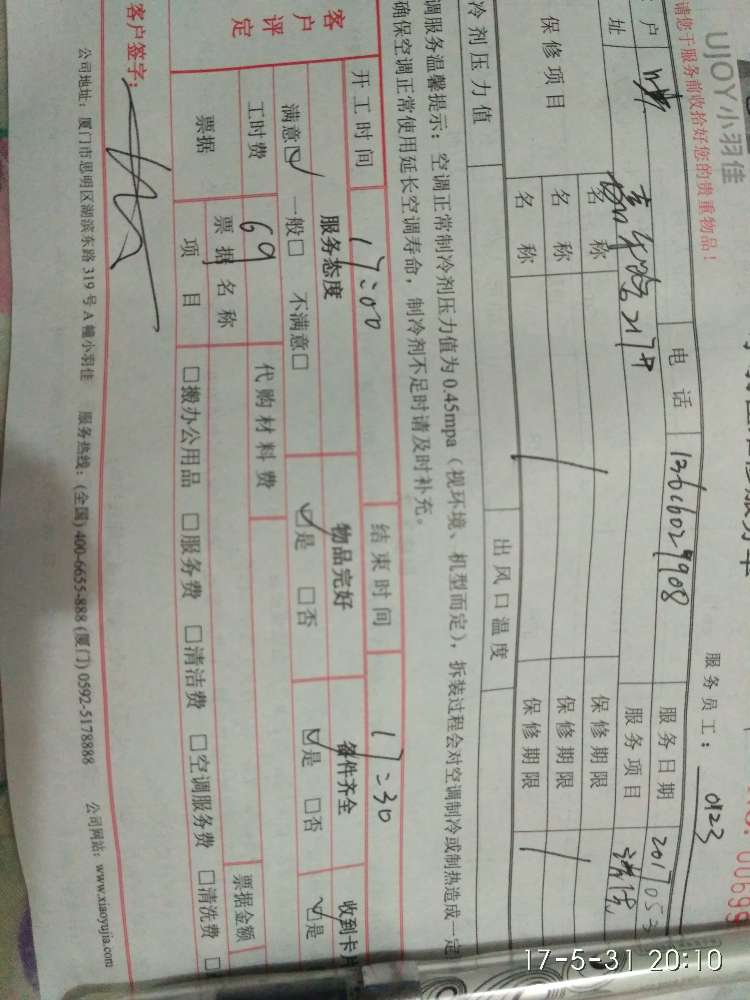 UJOY小羽佳
请您于服务前收拾好您的贵重物品！
服务员工： 0123
户 电话 13606029908 服务日期 2017053
址 服务项目 清洗
保修项目 名称 保修期限
名称 保修期限
名称 保修期限
冷剂压力值 出风口温度
调服务温馨提示：空调正常制冷剂压力值为0.45mpa（视环境、机型而定），拆装过程会对空调制冷或制热造成一定
确保空调正常使用延长空调寿命，制冷剂不足时请及时补充。
开工时间 17:00 结束时间 17:30
客户评定 服务态度 物品完好 备件齐全 收到卡片
满意☑ 一般□ 不满意□ ☑是 □否 ☑是 □否 ☑是
工时费 69 代购材料费
票据 票据名称 票据金额
项目 □搬办公用品 □服务费 □清洁费 □空调服务费 □清洗费 □
客户签字：
公司地址：厦门市思明区湖滨东路319号A幢小羽佳 服务热线：(全国) 400-6655-888 (厦门) 0592-5178888 公司网站：www.xiaoyujia.com
17-5-31 20:10